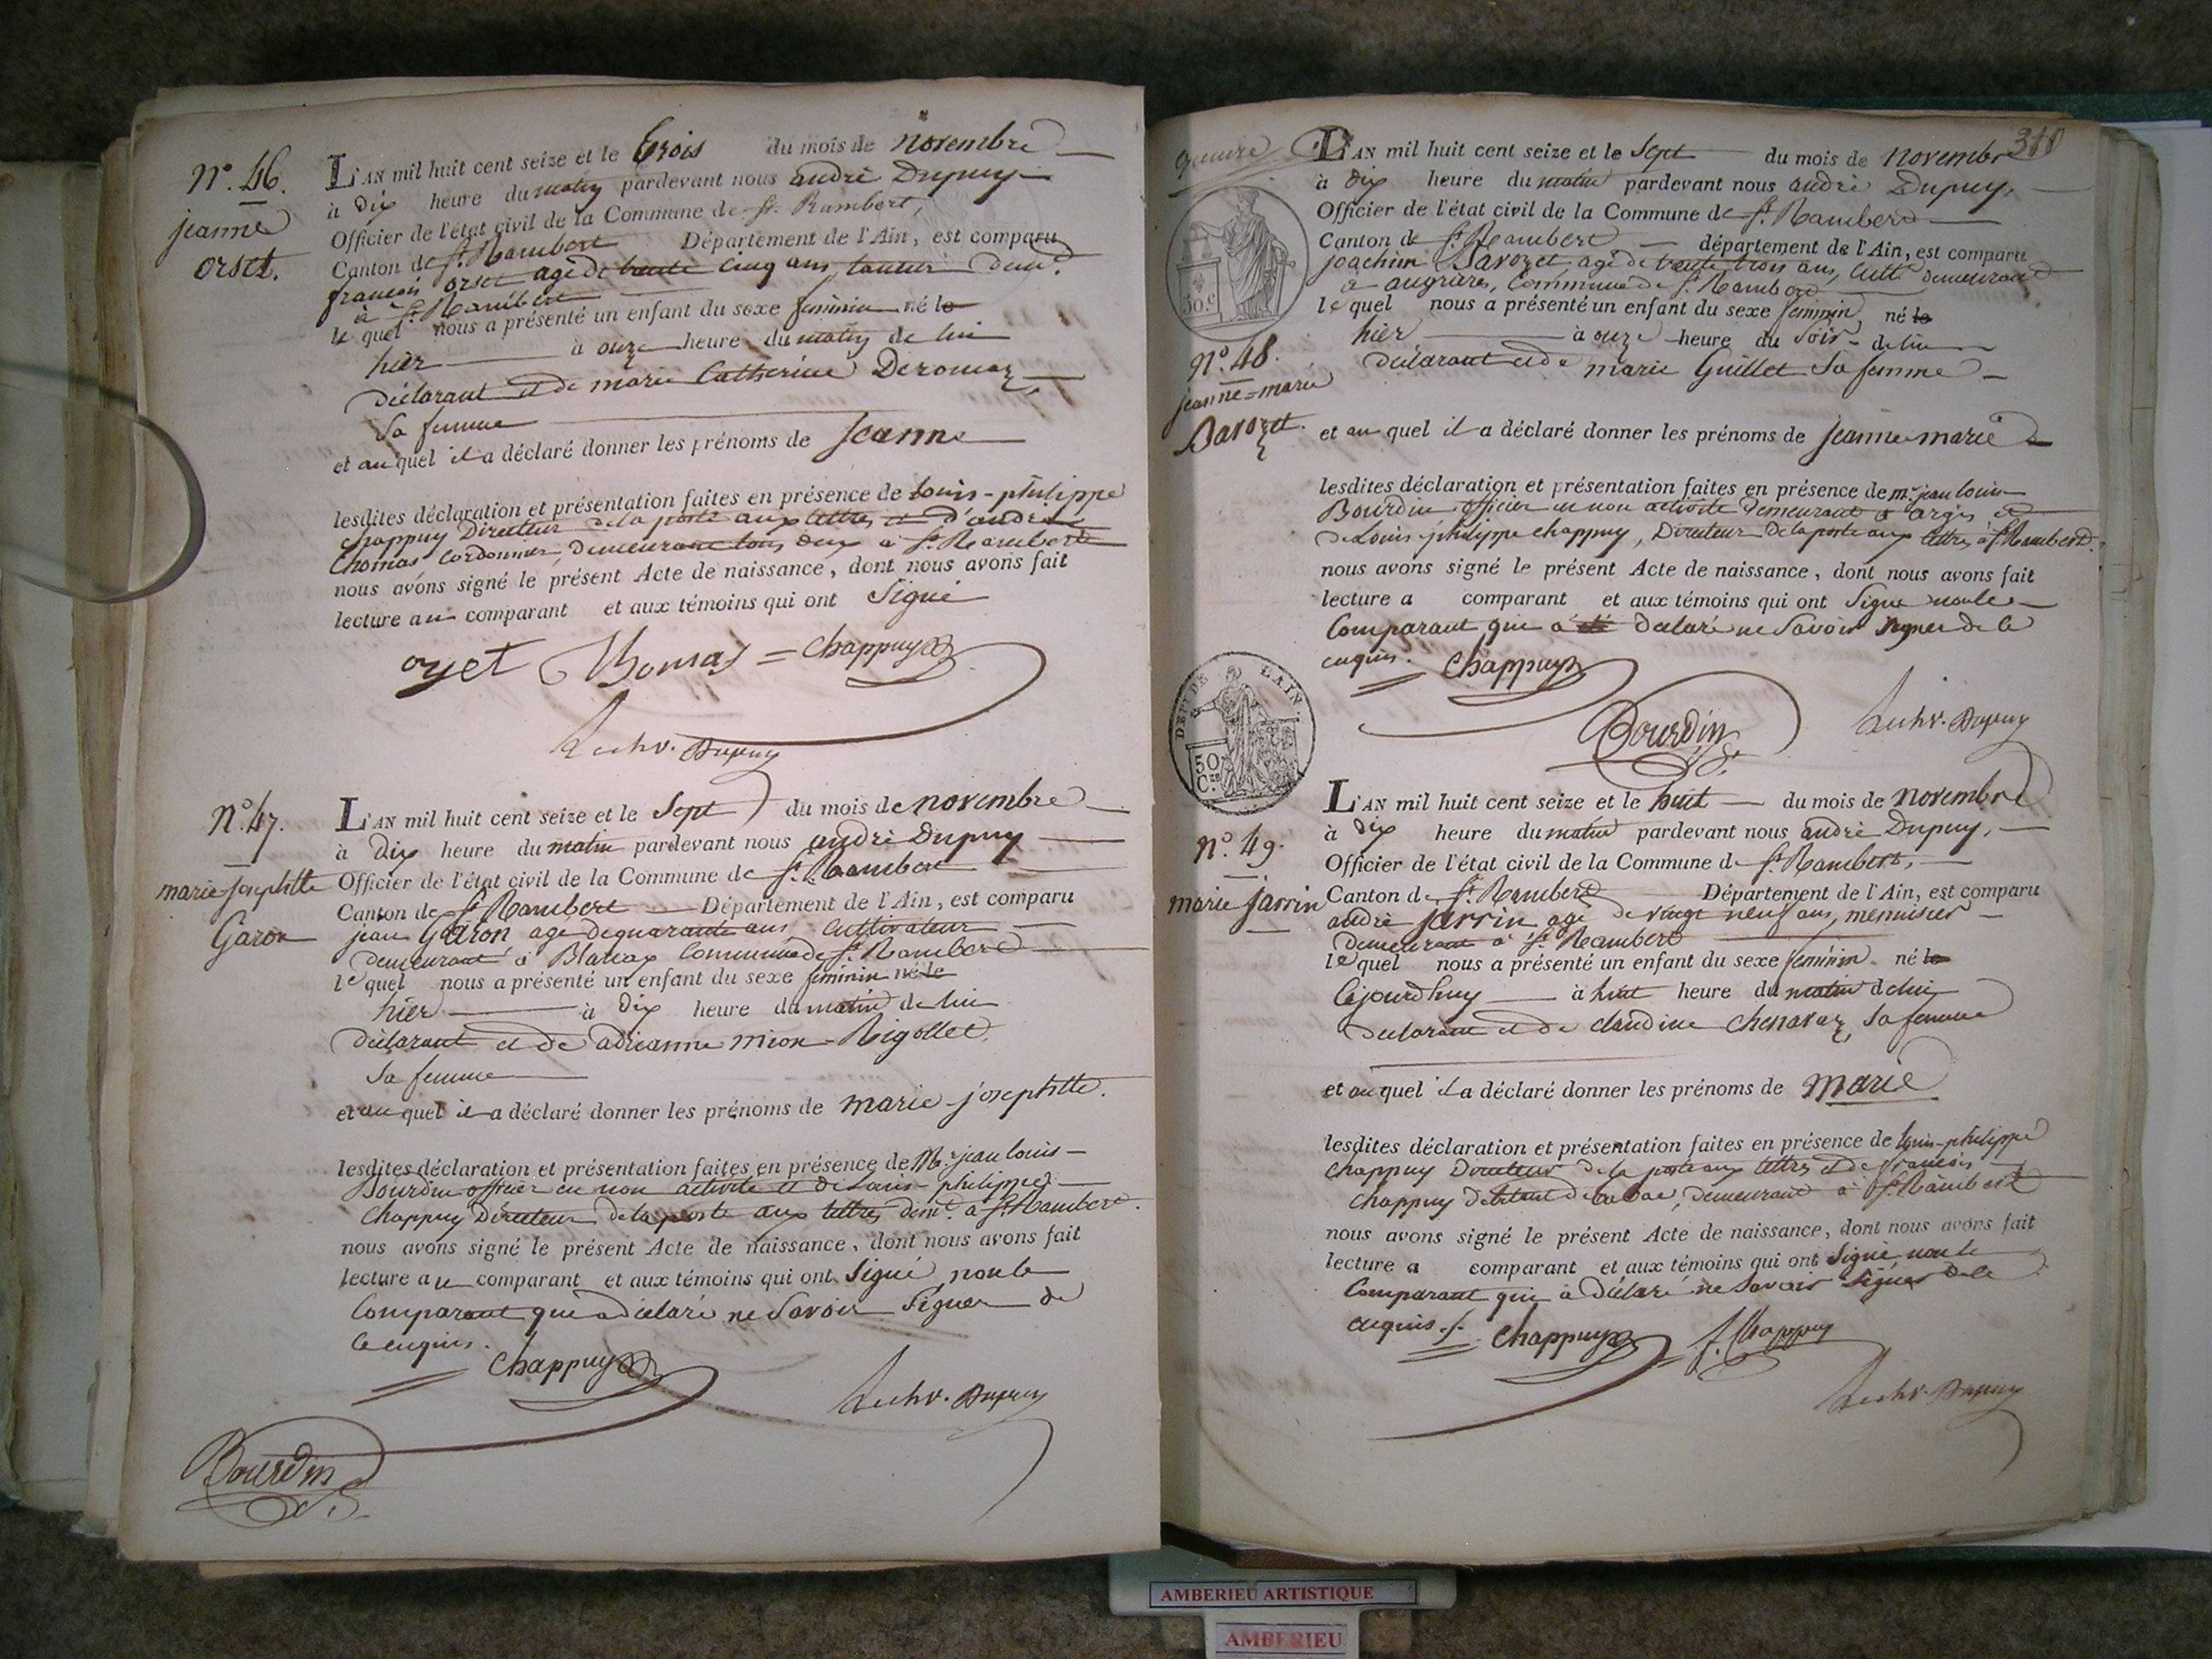 N.º 46.
jeanne
orset.
L'AN mil huit cent seize et le trois du mois de novembre
à dix heure du matin pardevant nous andrè Dupuy
Officier de l'état civil de la Commune de St. Rambert,
Canton de St. Rambert Département de l'Ain, est comparu
françois orset agé de trente cinq ans, tanneur dem.t
à St. Rambert
le quel nous a présenté un enfant du sexe feminin né le
hier à onze heure du matin de lui
déclarant et de marie Catherine Deromaz,
Sa femme
et au quel il a déclaré donner les prénoms de jeanne
lesdites déclaration et présentation faites en présence de Louis-philippe
chappuy Directeur de la poste aux lettres et d'andrè
thomas Cordonnier, demeurant tous deux à St. Rambert
nous avons signé le présent Acte de naissance, dont nous avons fait
lecture au comparant et aux témoins qui ont Signé
orset Thomas = chappuy
Dupuy
N.º 47.
marie josephtte
Garon
L'AN mil huit cent seize et le Sept du mois de novembre
à dix heure du matin pardevant nous andrè Dupuy
Officier de l'état civil de la Commune de St. Rambert
Canton de St. Rambert Département de l'Ain, est comparu
jean Garon agé de quarante ans, Cultivateur
demeurant à Blanaz Commune de St. Rambert
le quel nous a présenté un enfant du sexe feminin né le
hier à dix heure du matin de lui
déclarant et de adrianne mion-Rigollet,
Sa femme
et au quel il a déclaré donner les prénoms de marie-josephtte.
lesdites déclaration et présentation faites en présence de Mr. jean louis
Bourdin officier en non activité et de Louis-philippe
Chappuy Directeur de la poste aux lettres dem.t à St. Rambert.
nous avons signé le présent Acte de naissance, dont nous avons fait
lecture au comparant et aux témoins qui ont Signé, non le
Comparant qui a déclaré ne Savoir Signer de
ce enquis.
chappuy
Dupuy
Bourdin
310
50.c
N.º 48.
jeanne=marie
Savozet.
L'AN mil huit cent seize et le Sept du mois de novembre
à dix heure du matin pardevant nous andrè Dupuy,
Officier de l'état civil de la Commune de St. Rambert
Canton de St. Rambert département de l'Ain, est comparu
joachim Savozet agé de trente trois ans, Cult.r demeurant
à angrieres, Commune de St. Rambert
le quel nous a présenté un enfant du sexe feminin né le
hier à onze heure du Soir de lui
déclarant et de marie Guillet Sa femme
et au quel il a déclaré donner les prénoms de jeanne marie
lesdites déclaration et présentation faites en présence de mr. jean louis
Bourdin officier en non activité demeurant à argis et
de Louis-philippe chappuy, Directeur de la poste aux lettres à St. Rambert.
nous avons signé le présent Acte de naissance, dont nous avons fait
lecture a comparant et aux témoins qui ont Signé non le
Comparant qui a déclaré ne Savoir Signer de ce
enquis.
chappuy
Bourdin
Dupuy
DEPT DE L'AIN.
50
C.es
N.º 49.
marie jarrin
L'AN mil huit cent seize et le huit du mois de novembre
à dix heure du matin pardevant nous andrè Dupuy,
Officier de l'état civil de la Commune de St. Rambert,
Canton de St. Rambert Département de l'Ain, est comparu
andrè jarrin agé de vingt neuf ans, menuisier
demeurant à St. Rambert
le quel nous a présenté un enfant du sexe feminin né le
cejourd'huy à huit heure du matin de lui
déclarant et de claudine Chenavaz, Sa femme
et au quel il a déclaré donner les prénoms de marie
lesdites déclaration et présentation faites en présence de Louis-philippe
chappuy Directeur de la poste aux lettres et de françois
chappuy debitant de tabac, demeurant à St. Rambert
nous avons signé le présent Acte de naissance, dont nous avons fait
lecture a comparant et aux témoins qui ont Signé non le
Comparant qui a déclaré ne Savoir Signer de ce
enquis ./.
chappuy f. Chappuy
Dupuy
AMBERIEU ARTISTIQUE
AMBERIEU